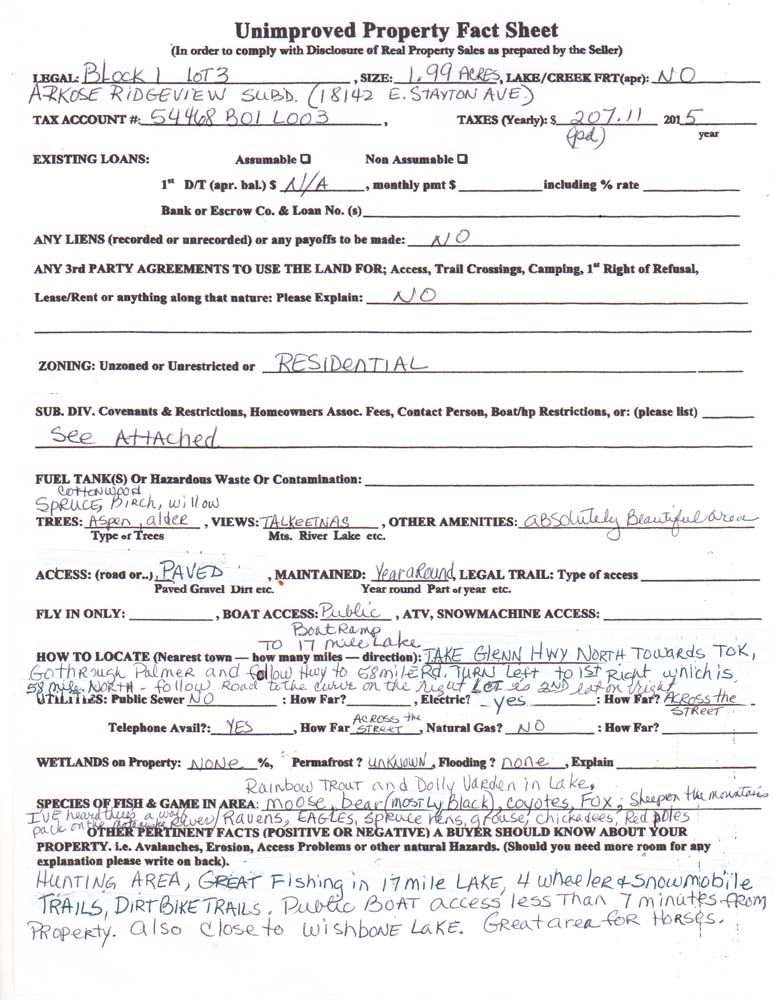 Unimproved Property Fact Sheet
(In order to comply with Disclosure of Real Property Sales as prepared by the Seller)
LEGAL: BLOCK 1 LOT 3, SIZE: 1.99 ACRES, LAKE/CREEK FRT(apr): NO
ARKOSE RIDGEVIEW SUBD. (18142 E. STAYTON AVE.)
TAX ACCOUNT #: 54468 B01 L003, TAXES (Yearly): $ 207.11 2015
(pd) year
EXISTING LOANS: Assumable ☐ Non Assumable ☐
1st D/T (apr. bal.) $ N/A, monthly pmt $ ________ including % rate ________
Bank or Escrow Co. & Loan No. (s)________
ANY LIENS (recorded or unrecorded) or any payoffs to be made: NO
ANY 3rd PARTY AGREEMENTS TO USE THE LAND FOR; Access, Trail Crossings, Camping, 1st Right of Refusal,
Lease/Rent or anything along that nature: Please Explain: NO
ZONING: Unzoned or Unrestricted or RESIDENTIAL
SUB. DIV. Covenants & Restrictions, Homeowners Assoc. Fees, Contact Person, Boat/hp Restrictions, or: (please list) ________
See Attached
FUEL TANK(S) Or Hazardous Waste Or Contamination: ________
Cottonwood
Spruce, Birch, Willow
TREES: Aspen, alder, VIEWS: TALKEETNAS, OTHER AMENITIES: absolutely Beautiful area
Type of Trees Mts. River Lake etc.
ACCESS: (road or..), PAVED, MAINTAINED: Year aRound, LEGAL TRAIL: Type of access ________
Paved Gravel Dirt etc. Year round Part of year etc.
FLY IN ONLY: ________, BOAT ACCESS: Public, ATV, SNOWMACHINE ACCESS: ________
Boat Ramp
TO 17 mile Lake
HOW TO LOCATE (Nearest town — how many miles — direction): TAKE Glenn Hwy North Towards Tok,
Go through Palmer and follow Hwy to 58 mile Rd. Turn Left to 1st Right which is
58 mile. North - follow Road to the curve on the right LOT is 2ND lot on right
UTILITIES: Public Sewer NO : How Far?________, Electric? yes : How Far? Across the
STREET
Telephone Avail?: YES, How Far ACROSS the STREET, Natural Gas? NO : How Far? ________
WETLANDS on Property: NONE %, Permafrost? UNKNOWN, Flooding? none, Explain ________
Rainbow Trout and Dolly Varden in Lake,
SPECIES OF FISH & GAME IN AREA: moose, bear (mostly black), coyotes, Fox, Sheep on the mountains
I've heard there's a wolf pack on the Matanuska River / Ravens, EAGLES, spruce hens, grouse, chickadees, Red poles
OTHER PERTINENT FACTS (POSITIVE OR NEGATIVE) A BUYER SHOULD KNOW ABOUT YOUR
PROPERTY. i.e. Avalanches, Erosion, Access Problems or other natural Hazards. (Should you need more room for any
explanation please write on back).
HUNTING AREA, GREAT Fishing in 17 mile LAKE, 4 wheeler & snowmobile
TRAILS, DIRT BIKE TRAILS. Public BOAT access less Than 7 minutes from
PROPERTY. Also Close to WISHBONE LAKE. Great area for Horses.